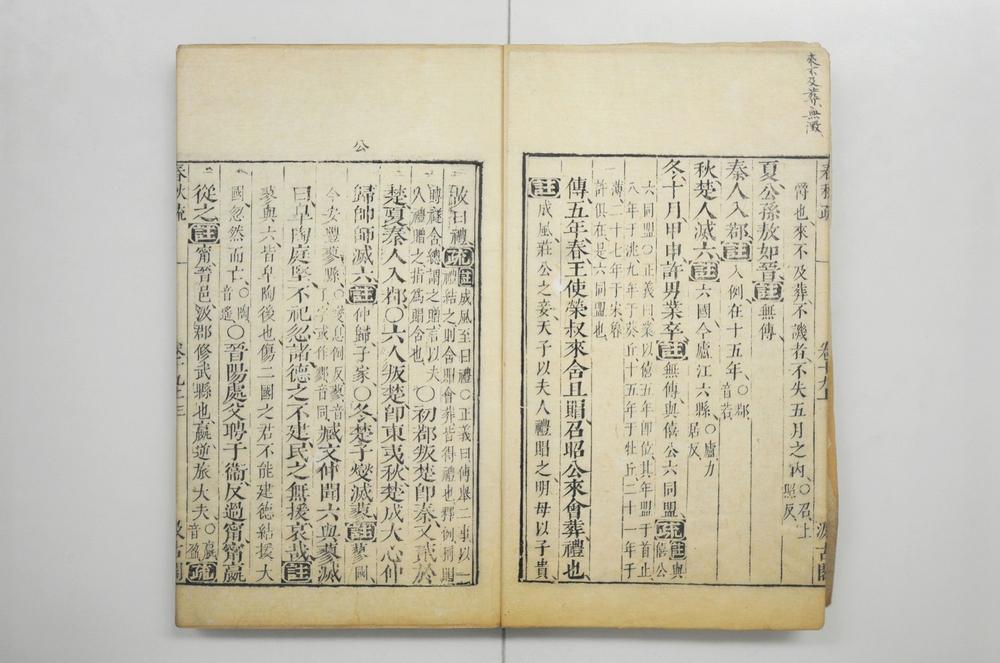 來不及葬無譏
春秋疏
卷十九上
汲古閣
啠也來不及葬不譏者不失五月之內〇召上
照反
夏公孫敖如晉註無傳
秦人入鄀註入例在十五年〇鄀
音若
秋楚人滅六註六國今廬江六縣〇廬力
居反
冬十月甲申許男業卒註無傳與僖公六同盟疏註與
僖公
六同盟〇正義曰業以僖五年即位其年盟于首止
八年于洮九年于葵丘十五年于牡丘二十一年于
薄二十七年于宋魯
許俱在是六同盟也
傳五年春王使榮叔來含且賵召昭公來會葬禮也
註成風莊公之妾天子以夫人禮賵之明母以子貴
公
故曰禮疏註成風至曰禮〇正義曰傳舉二事以一
禮結之則含賵會葬皆得禮也釋例曰賵
賻襚含總謂之贈言以夫
人禮贈之指爲賵含也
〇初鄀叛楚即秦又貳於
楚夏秦人入鄀〇六人叛楚即東夷秋楚成大心仲
歸帥師滅六註仲歸子家〇冬楚子燮滅蓼註蓼國
今安豐蓼縣〇燮息何反蓼音
了字或作鄝音同
臧文仲聞六與蓼滅
曰皐陶庭堅不祀忽諸德之不建民之無援哀哉註
蓼與六皆皐陶後也傷二國之君不能建德結援大
國忽然而亡〇陶
音遙
〇晉陽處父聘于衞反過甯甯嬴
從之註甯晉邑汲郡修武縣也嬴逆旅大夫〇嬴
音盈疏
春秋疏
汲古閣